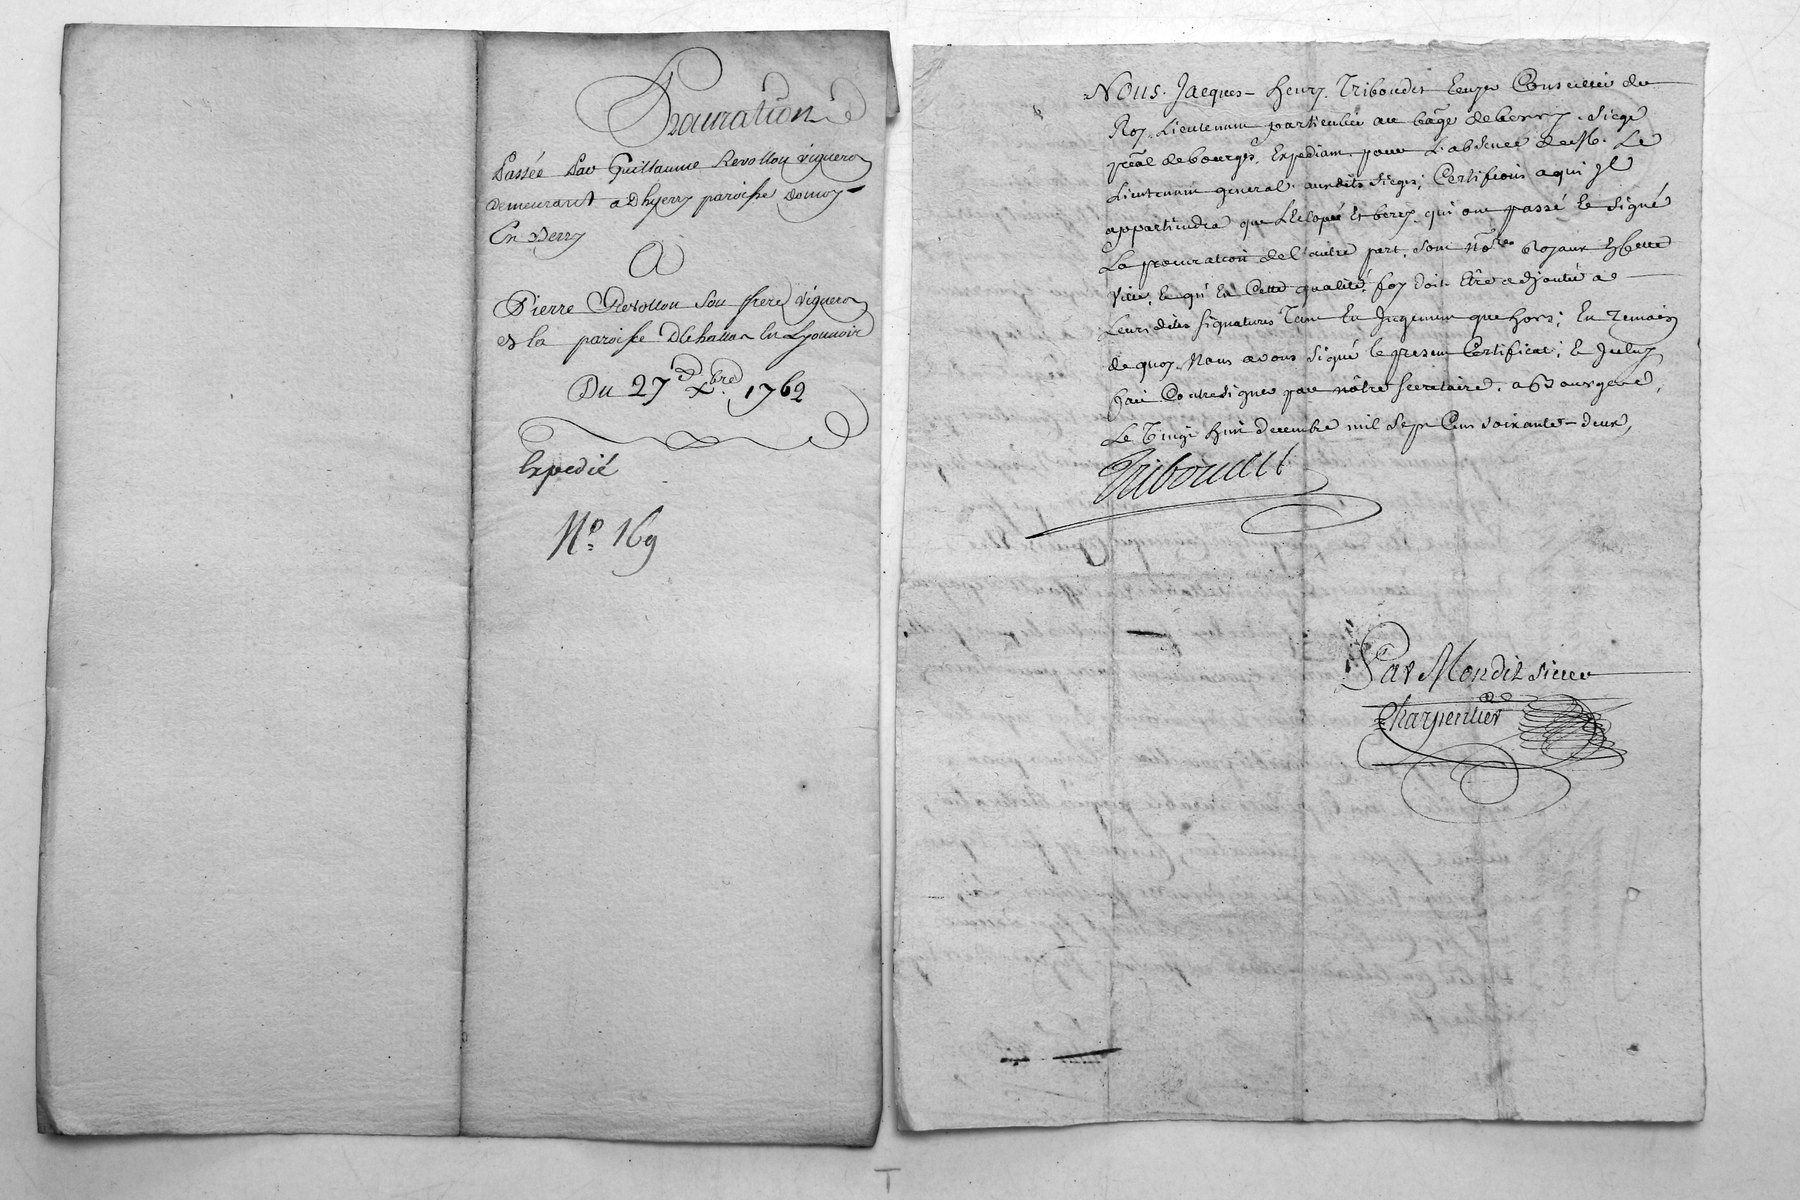 Procuration
Passée Par Guillaume Revollon vigneron
demeurant a Dhyerry paroisse Domoy
En Berry
A
Pierre Revollon Son frere vigneron
en la paroisse De en Lyonnois
Du 27e Xbre 1762
Expedié
No. 169
Nous Jacques henry Triboudet Conseiller du
Roy Lieutenant particulier au bage. de berry Siege
pral. de bourges, Expediant pour L'absence de M. Le
Lieutenant general ausdits Sieges; Certifions a qui Jl
appartiendra que et bery qui ont passé et Signé
La procuration de l'autre part, sont nores Royaux En cette
ville, et qu'En Cette qualité, foy doit Etre adjoutée a
Leurs dites Signatures Tant En Jugement que hors; En Temoin
de quoy Nous avons signé le present Certificat; et Jceluy
fait Contresigner par nôtre Secretaire. a Bourges,
Le Vingt huit decembre mil Sept Cent soixante-deux,
Triboudet
Par Mondit Sieur
Charpentier